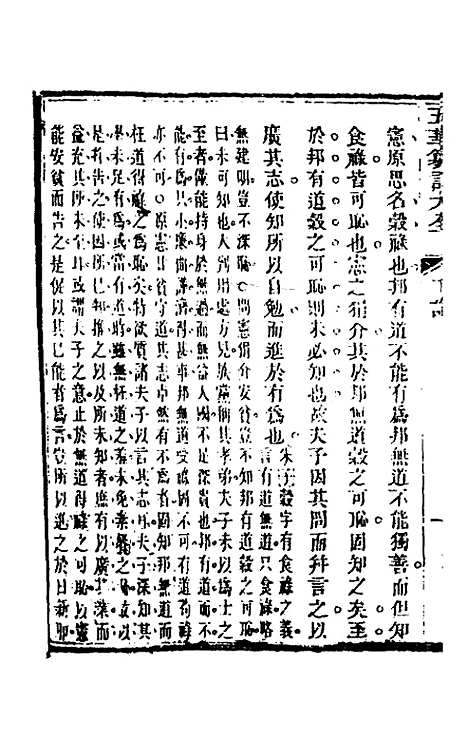 憲原思名穀祿也邦有道不能有爲邦無道不能獨善而但知
食祿皆可恥也憲之狷介其於邦無道穀之可恥固知之矣至
於邦有道穀之可恥則未必知也故夫子因其問而幷言之以
廣其志使知所以自勉而進於有爲也
朱子 穀字有食祿之義
言有道無道只食祿略
無建明豈不深恥憲狷介安貧豈不知邦有道穀之
曰未可知也人到用處方見於黨稱其孝弟夫子未以爲士之
至者僅能持身於無過無益人國不足深貴也邦有道而不
能有爲只小廉曲謹濟得甚事邦無道受祿固不可有道苟祿
亦不可憲也貧守道其志卓然有不爲者固知邦無道而
枉道得祿之爲恥矣特欲質諸夫子以言其志耳夫子深知其
是未足有爲或當有道時雖無枉道之羞未免素餐之
是者告之使因所已知推之以及所未知者庶有以廣其業而
益充其所未至耳或謂夫子之意止於無道得祿之可恥以憲
能安貧而告之是促以其已能者爲言豈所以進之於日新耶